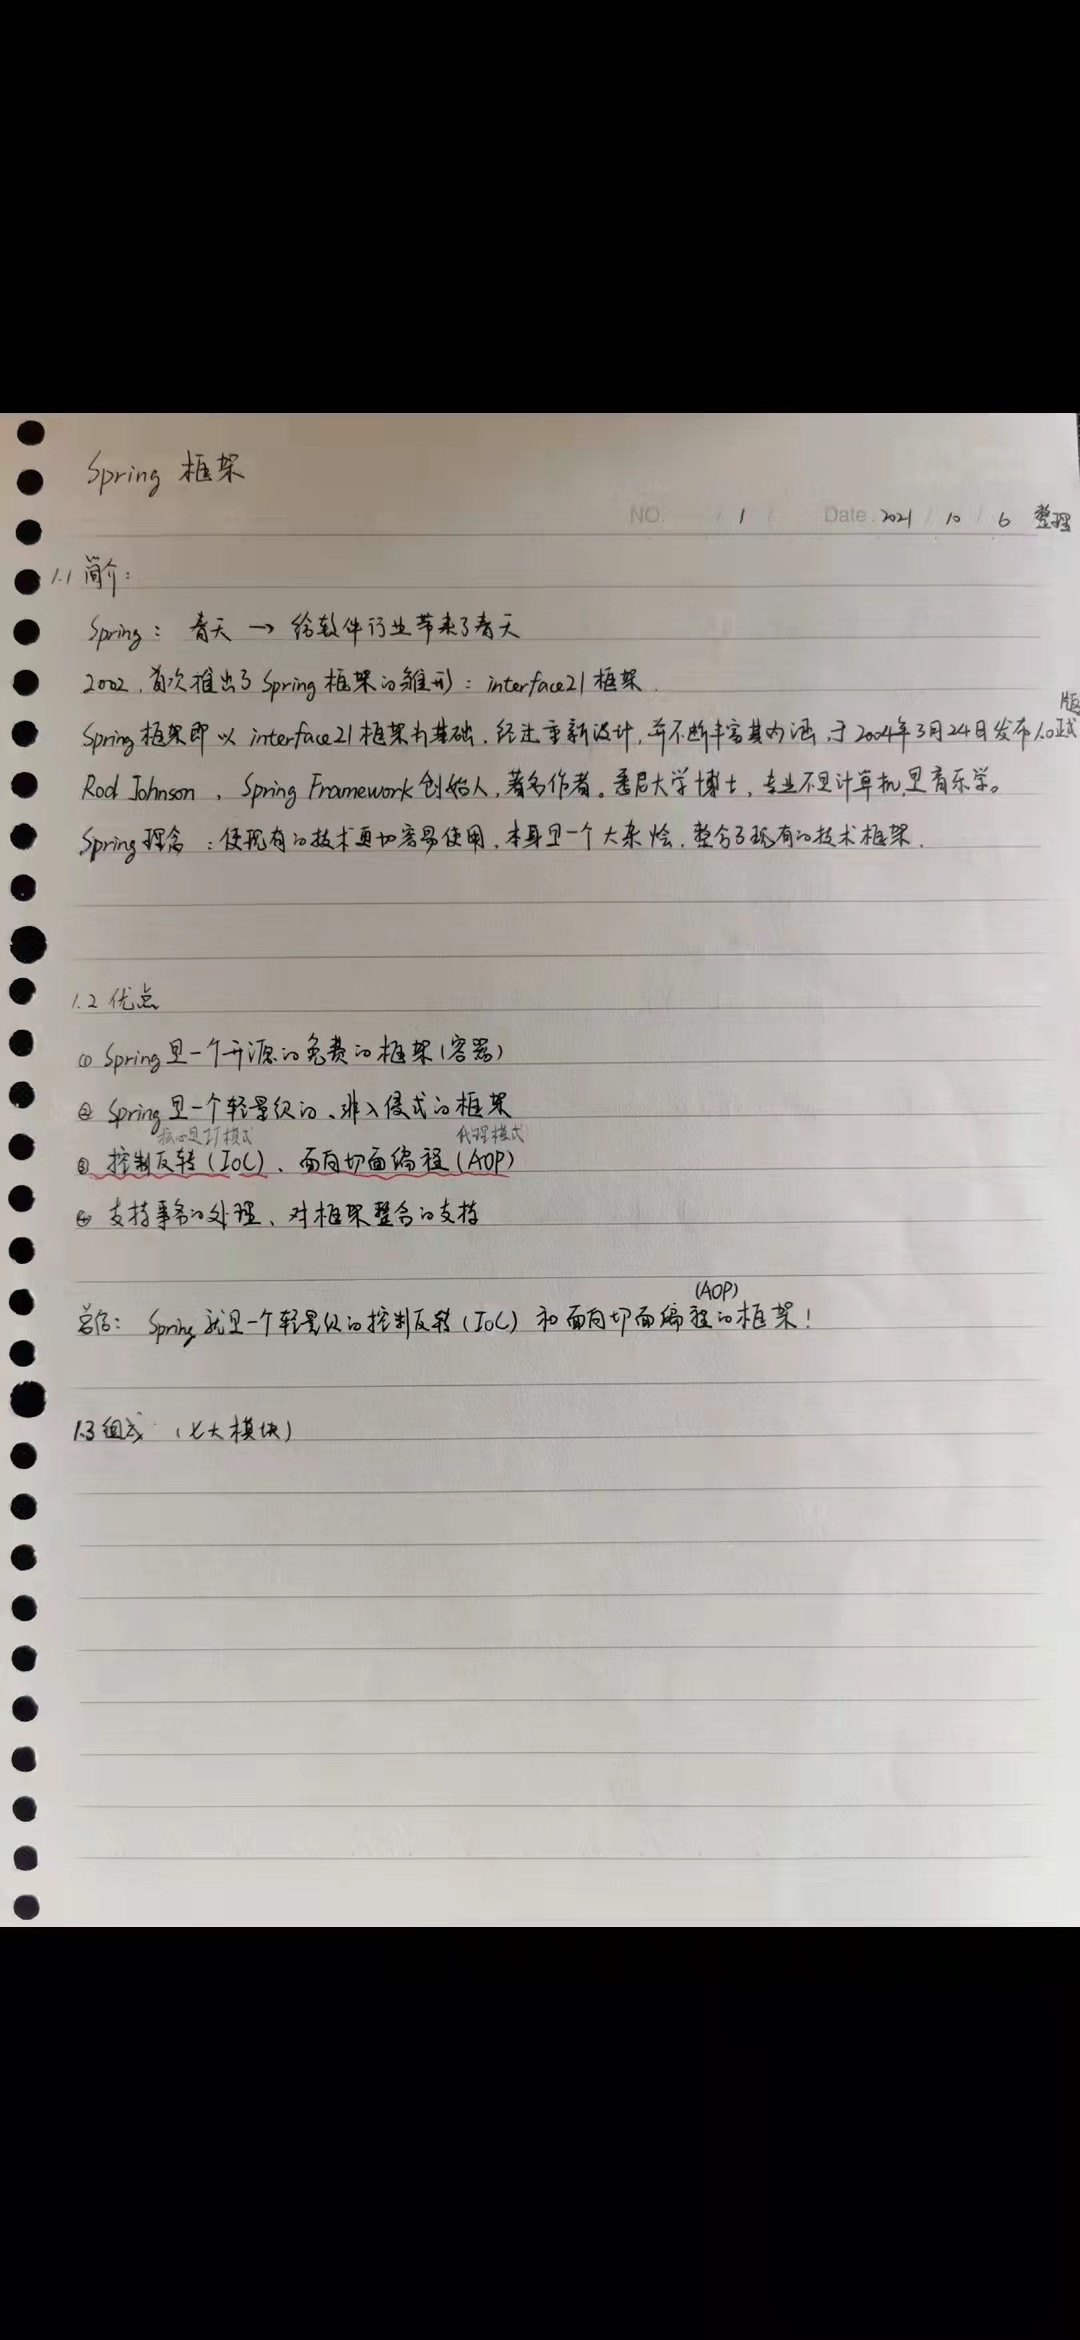 Spring 框架
NO. 1 Date. 2021 / 10 / 6 整理
1.1 简介：
Spring：春天 → 给软件行业带来了春天
2002，首次推出了Spring框架的雏形：interface21 框架.
Spring框架即以 interface21框架为基础，经过重新设计，并不断丰富其内涵，于2004年3月24日发布1.0正式版
Rod Johnson，Spring Framework创始人，著名作者。悉尼大学博士，专业不是计算机，是音乐学。
Spring理念：使现有的技术更加容易使用，本身是一个大杂烩，整合了现有的技术框架.
1.2 优点
① Spring是一个开源的免费的框架(容器)
② Spring是一个轻量级的、非入侵式的框架
核心是工厂模式 代理模式
③ 控制反转(IoC)、面向切面编程(AOP)
④ 支持事务的处理、对框架整合的支持
(AOP)
总结：Spring就是一个轻量级的控制反转(IoC)和面向切面编程的框架！
1.3 组成 (七大模块)